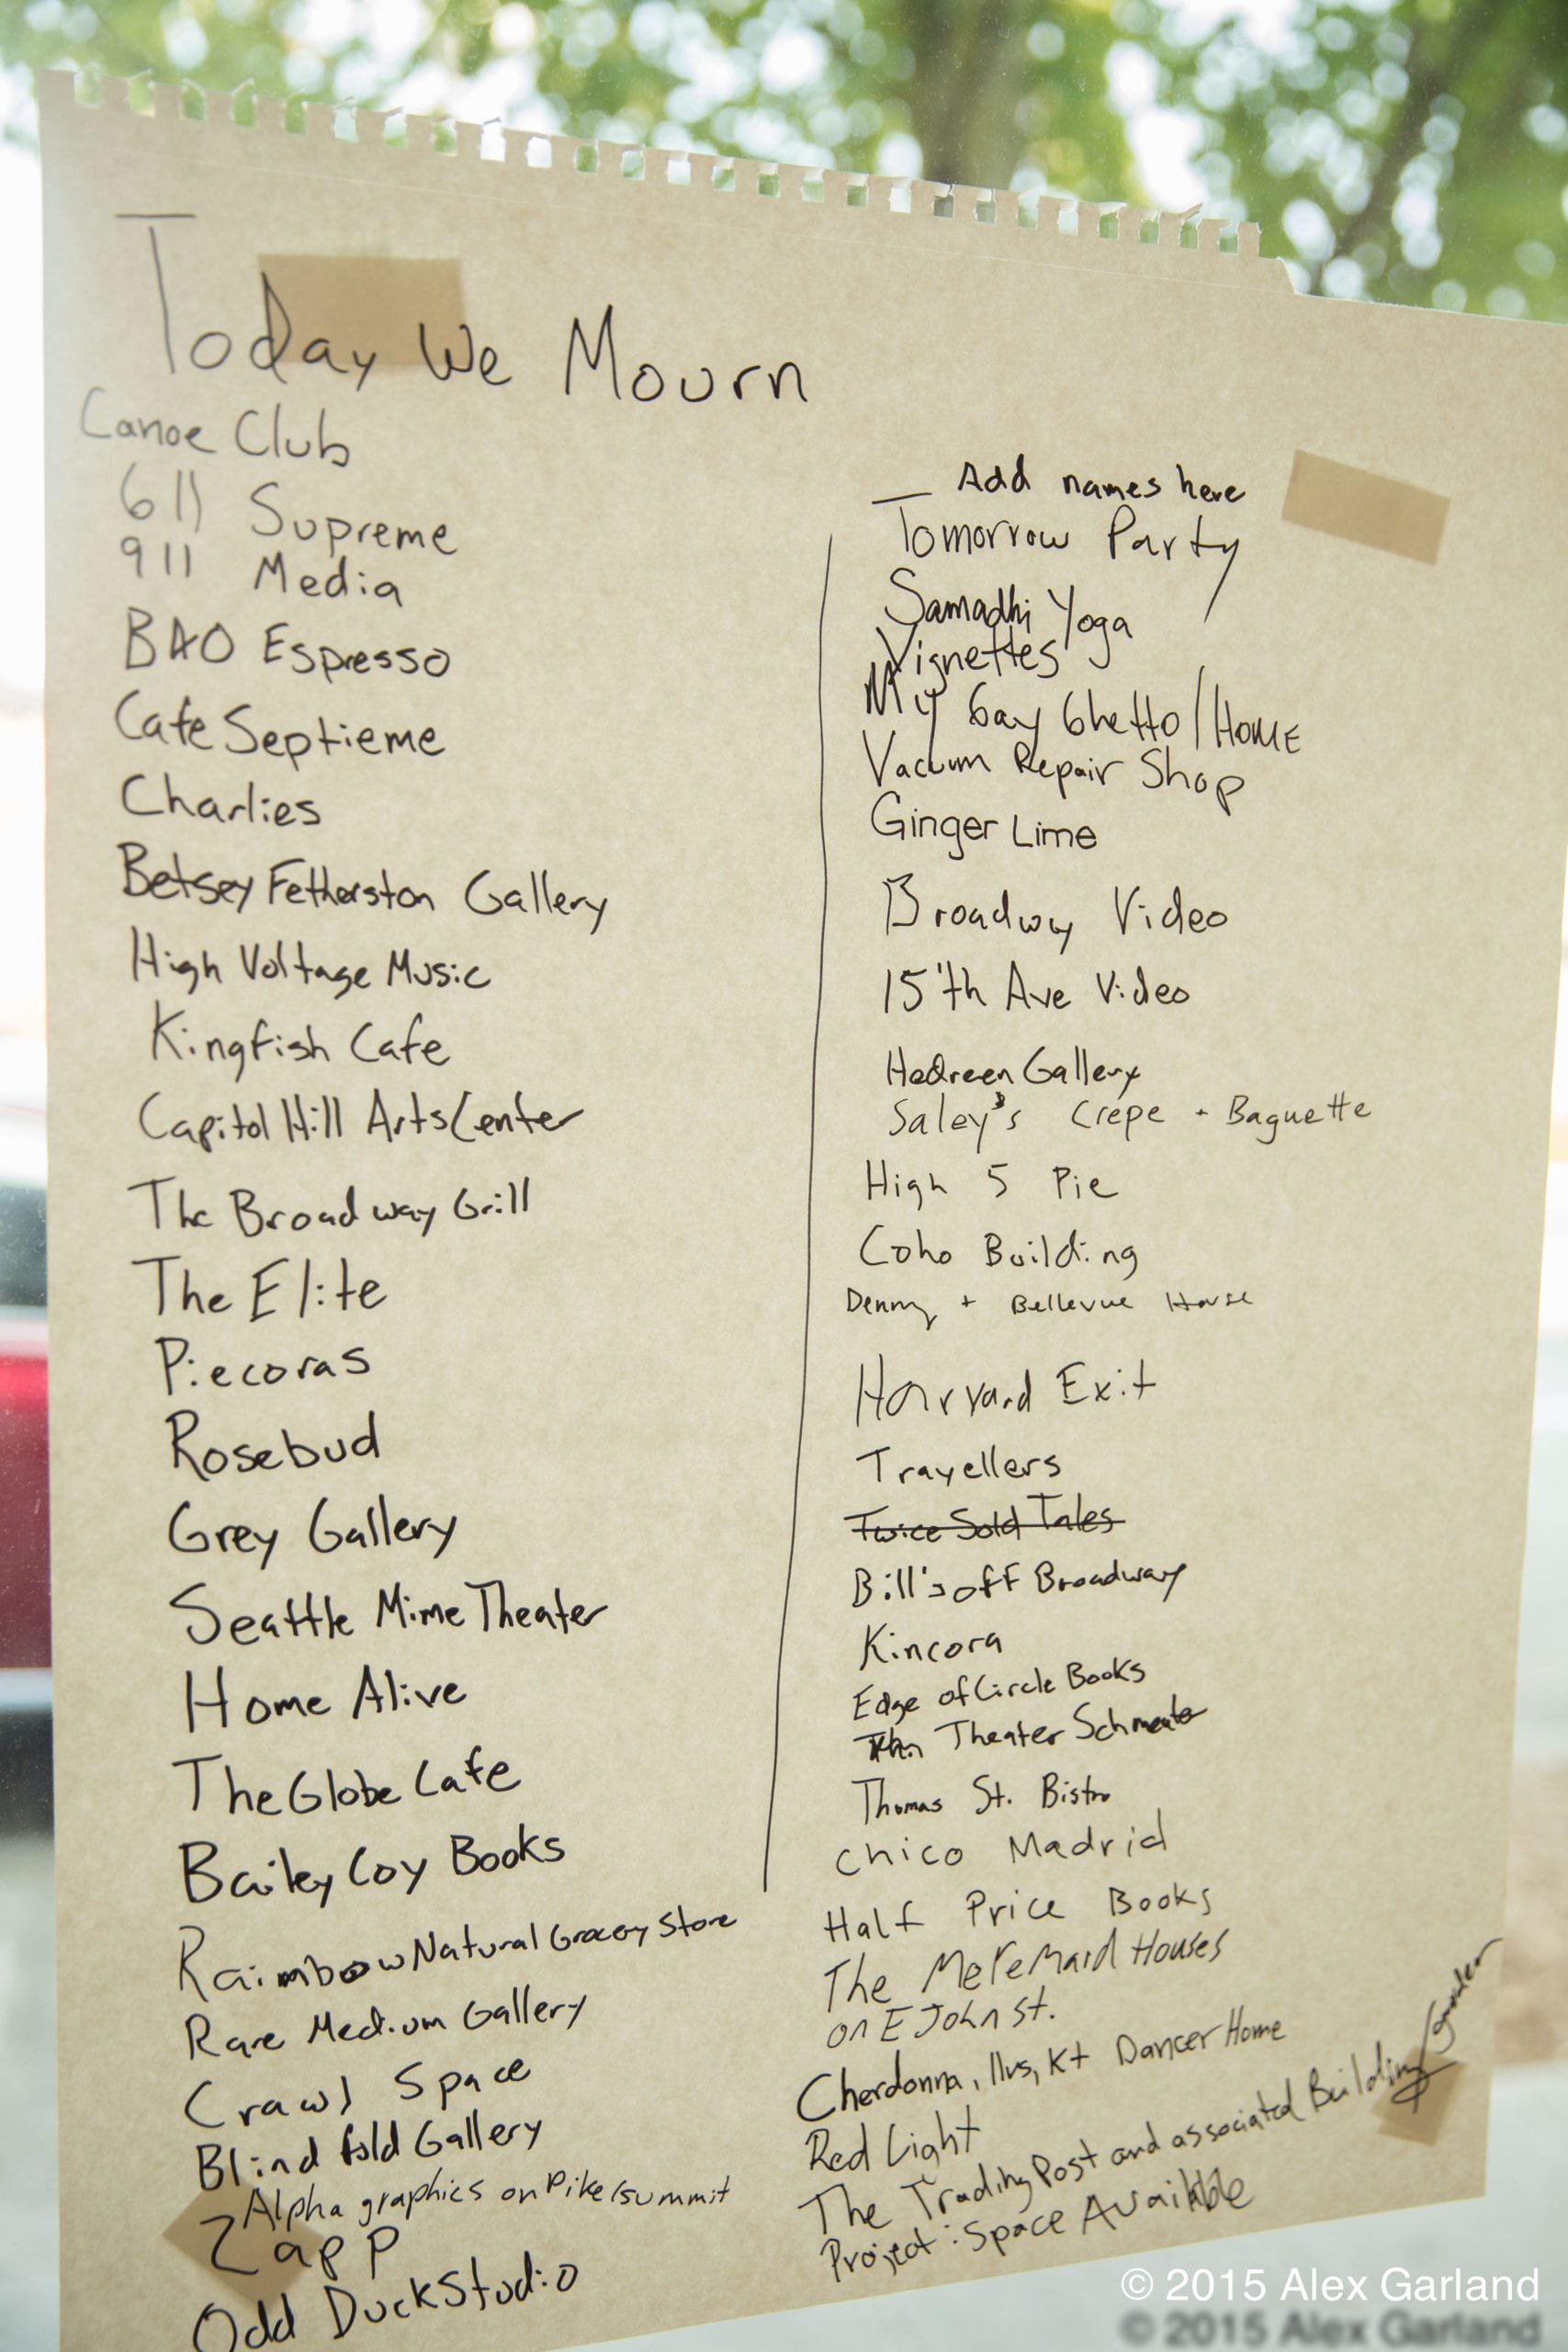 Today We Mourn
Canoe Club
611 Supreme
911 Media
BAO Espresso
Cafe Septieme
Charlies
Betsey Fetherston Gallery
High Voltage Music
Kingfish Cafe
Capitol Hill Arts Center
The Broadway Grill
The Elite
Piecoras
Rosebud
Grey Gallery
Seattle Mime Theater
Home Alive
The Globe Cafe
Bailey Coy Books
Rainbow Natural Grocery Store
Rare Medium Gallery
Crawl Space
Blind fold Gallery
Alpha graphics on Pike/summit
Zapp
Odd Duck Studio
Add names here
Tomorrow Party
Samadhi Yoga
Vignettes
My Gay Ghetto / HOME
Vacuum Repair Shop
Ginger Lime
Broadway Video
15'th Ave Video
Hedreen Gallery
Saley's Crepe + Baguette
High 5 Pie
Coho Building
Denny + Bellevue House
Harvard Exit
Travellers
Twice Sold Tales
Bill's off Broadway
Kincora
Edge of Circle Books
Theater Schmeater
Thomas St. Bistro
Chico Madrid
Half Price Books
The Meremaid Houses
on E John st.
Cherdonna, Ilvs, Kt Dancer Home
Red Light
The Trading Post and associated Building/
Project: Space Available
© 2015 Alex Garland